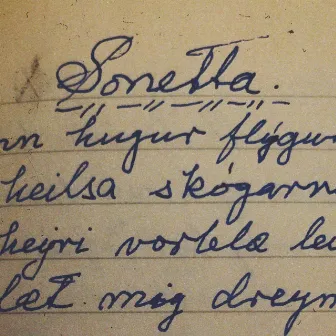 Sonetta.
nn hugur flýgur
heilsa skógarn
heyri vorblæ le
læt mig dreym